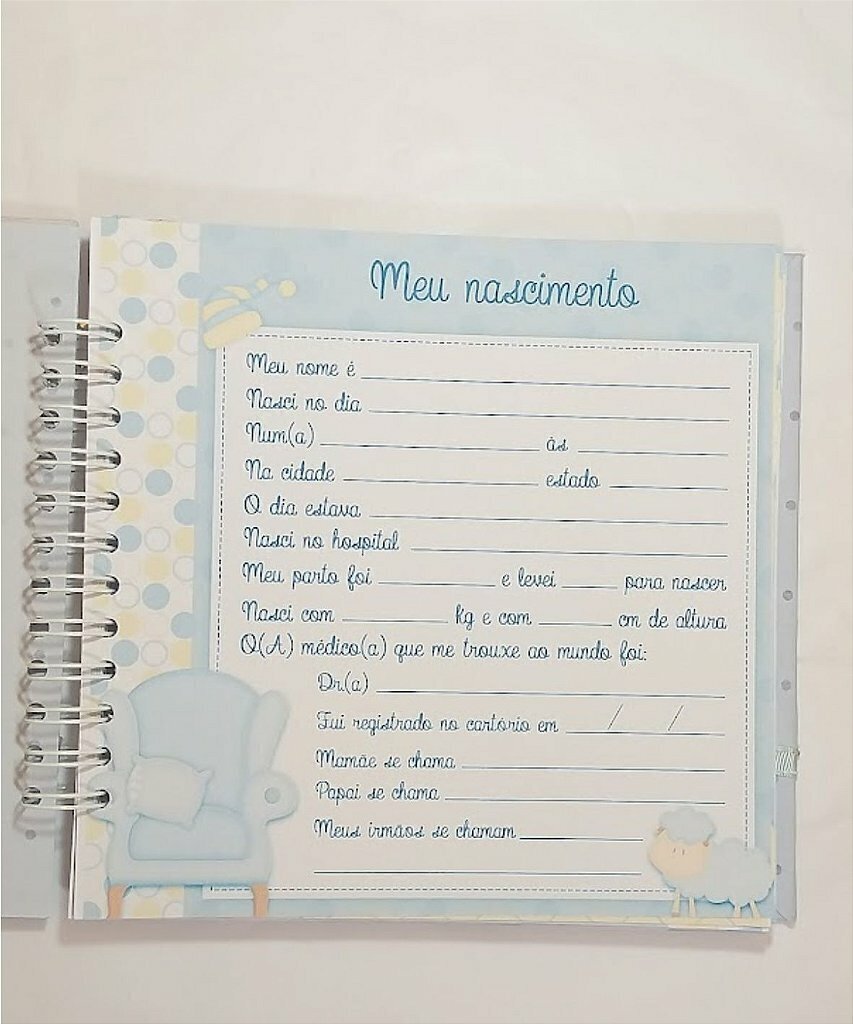 Meu nascimento
Meu nome é
Nasci no dia
Num(a) às
Na cidade estado
O dia estava
Nasci no hospital
Meu parto foi e levei para nascer
Nasci com kg e com cm de altura
O(A) médico(a) que me trouxe ao mundo foi:
Dr.(a)
Fui registrado no cartório em / /
Mamãe se chama
Papai se chama
Meus irmãos se chamam